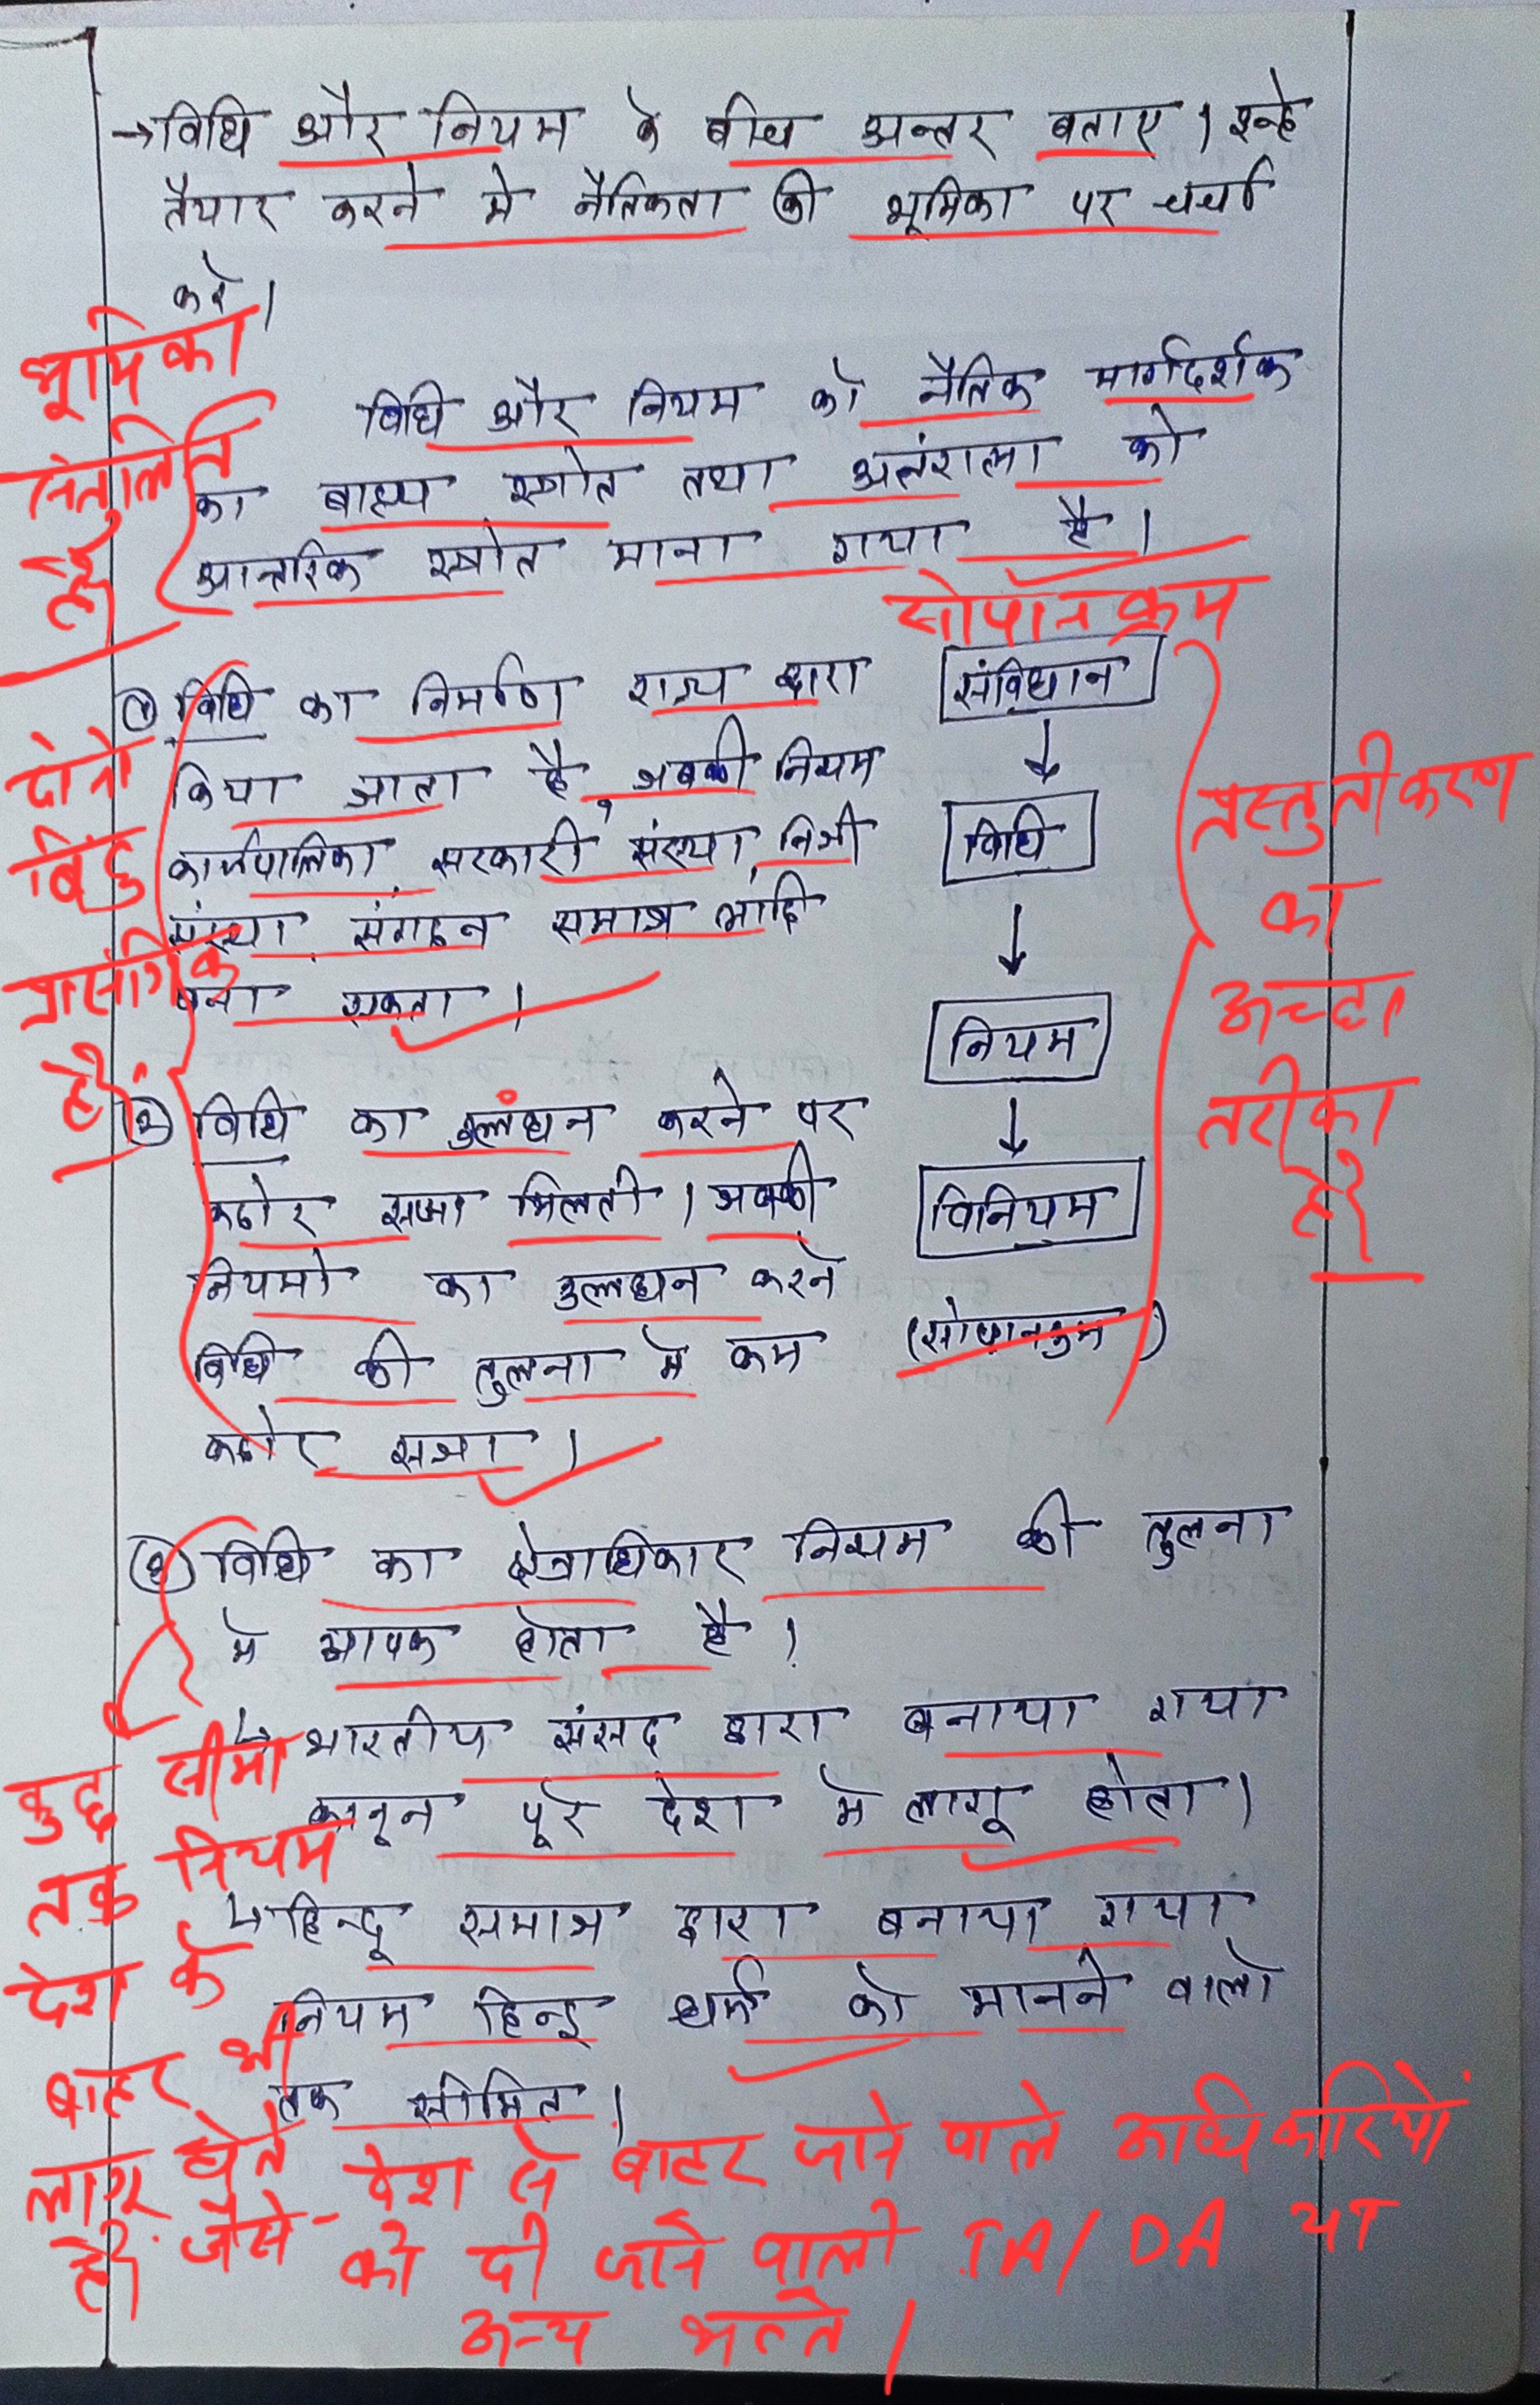 →विधि और नियम के बीच अन्तर बताए। इन्हे
तैयार करने मे नैतिकता की भूमिका पर चर्चा
करे।
भूमिका
संतुलित
है
विधि और नियम को नैतिक मार्गदर्शक
का बाह्य स्त्रोत तथा अन्तंरात्मा को
आन्तरिक स्त्रोत माना गया है।
सोपान क्रम
① विधि का निर्माण राज्य द्वारा
किया जाता है, जबकी नियम
कार्यपालिका, सरकारी संस्था, निजी
संस्था, संगठन समाज आदि
बना सकता।
दोनो
बिंदु
प्रासंगिक
हैं
संविधान
↓
विधि
↓
नियम
↓
विनियम
(सोपानक्रम)
प्रस्तुतीकरण
का
अच्छा
तरीका
है
② विधि का उल्लंघन करने पर
कठोर सजा मिलती। जबकी
नियमो का उल्लघन करने
विधि की तुलना मे कम
कठोर सजा।
③ विधि का क्षेत्राधिकार नियम की तुलना
मे व्यापक होता है।
↳ भारतीय संसद द्वारा बनाया गया
कानून पूरे देश मे लागू होता।
↳ हिन्दू समाज द्वारा बनाया गया
नियम हिन्दू धर्म को मानने वालो
तक सीमित।
कुछ सीमा
तक नियम
देश के
बाहर भी
लागू होते
हैं. जैसे- देश से बाहर जाने वाले अधिकारियों
को दी जाने वाली TA/DA या
अन्य भत्ते।